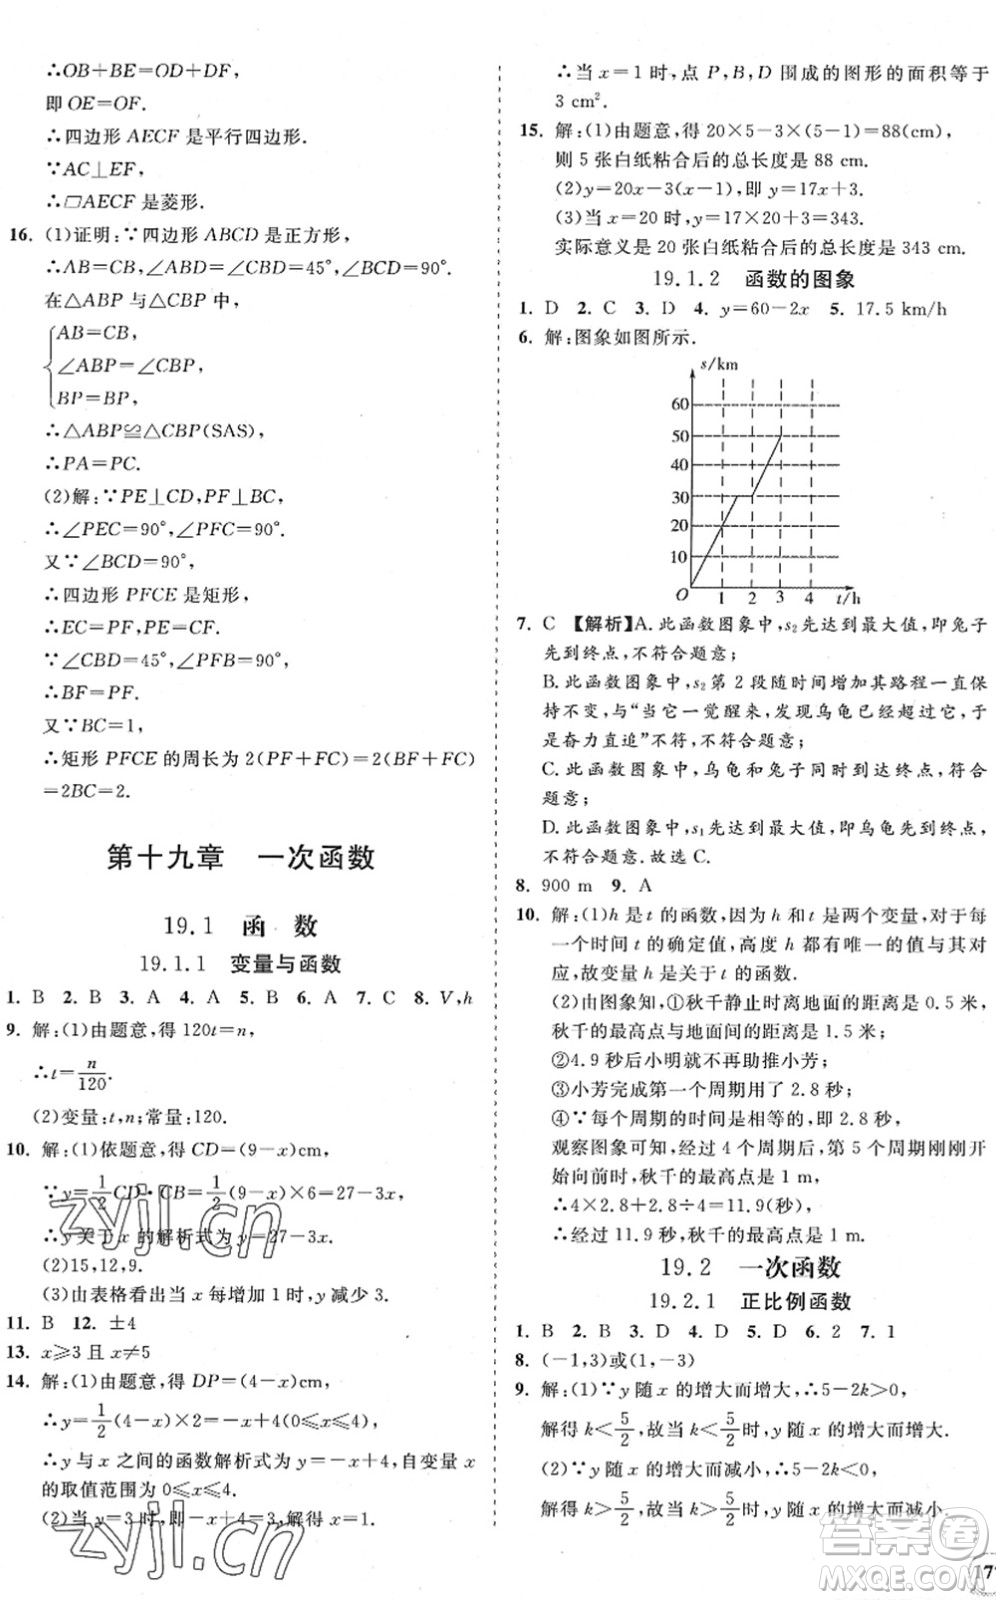 ∴OB+BE=OD+DF,
即 OE=OF.
∴四边形 AECF 是平行四边形.
∵AC⊥EF,
∴▱AECF 是菱形.
16. (1)证明:∵四边形 ABCD 是正方形,
∴AB=CB,∠ABD=∠CBD=45°,∠BCD=90°.
在△ABP 与△CBP 中,
AB=CB,
∠ABP=∠CBP,
BP=BP,
∴△ABP≌△CBP(SAS),
∴PA=PC.
(2)解:∵PE⊥CD,PF⊥BC,
∴∠PEC=90°,∠PFC=90°.
又∵∠BCD=90°,
∴四边形 PFCE 是矩形,
∴EC=PF,PE=CF.
∵∠CBD=45°,∠PFB=90°,
∴BF=PF.
又∵BC=1,
∴矩形 PFCE 的周长为 2(PF+FC)=2(BF+FC)
=2BC=2.
第十九章 一次函数
19.1 函 数
19.1.1 变量与函数
1. B 2. B 3. A 4. A 5. B 6. A 7. C 8. V,h
9. 解:(1)由题意,得 120t=n,
∴t=n/120.
(2)变量:t,n;常量:120.
10. 解:(1)依题意,得 CD=(9-x)cm,
∵y=1/2CD·CB=1/2(9-x)×6=27-3x,
∴y 关于 x 的解析式为 y=27-3x.
(2)15,12,9.
(3)由表格看出当 x 每增加 1 时,y 减少 3.
11. B 12. ±4
13. x≥3 且 x≠5
14. 解:(1)由题意,得 DP=(4-x)cm,
∴y=1/2(4-x)×2=-x+4(0≤x≤4),
∴y 与 x 之间的函数解析式为 y=-x+4,自变量 x
的取值范围为 0≤x≤4.
(2)当 y=3 时,即-x+4=3,解得 x=1.
∴当 x=1 时,点 P,B,D 围成的图形的面积等于
3 cm².
15. 解:(1)由题意,得 20×5-3×(5-1)=88(cm),
则 5 张白纸粘合后的总长度是 88 cm.
(2)y=20x-3(x-1),即 y=17x+3.
(3)当 x=20 时,y=17×20+3=343.
实际意义是 20 张白纸粘合后的总长度是 343 cm.
19.1.2 函数的图象
1. D 2. C 3. D 4. y=60-2x 5. 17.5 km/h
6. 解:图象如图所示.
s/km
60
50
40
30
20
10
O 1 2 3 4 t/h
7. C 【解析】A.此函数图象中,s₂先达到最大值,即兔子
先到终点,不符合题意;
B.此函数图象中,s₂第 2 段随时间增加其路程一直保
持不变,与“当它一觉醒来,发现乌龟已经超过它,于
是奋力直追”不符,不符合题意;
C.此函数图象中,乌龟和兔子同时到达终点,符合
题意;
D.此函数图象中,s₁先达到最大值,即乌龟先到终
点,不符合题意.故选 C.
8. 900 m 9. A
10. 解:(1)h 是 t 的函数,因为 h 和 t 是两个变量,对于每
一个时间 t 的确定值,高度 h 都有唯一的值与其对
应,故变量 h 是关于 t 的函数.
(2)由图象知,①秋千静止时离地面的距离是 0.5 米,
秋千的最高点与地面间的距离是 1.5 米;
②4.9 秒后小明就不再助推小芳;
③小芳完成第一个周期用了 2.8 秒;
④∵每个周期的时间是相等的,即都为 2.8 秒,
观察图象可知,经过 4 个周期后,第 5 个周期刚刚开
始向前时,秋千的最高点是 1 m,
∴4×2.8+2.8÷4=11.9(秒),
∴经过 11.9 秒,秋千的最高点是 1 m.
19.2 一次函数
19.2.1 正比例函数
1. B 2. B 3. D 4. D 5. D 6. 2 7. 1
8. (-1,3)或(1,-3)
9. 解:(1)∵y 随 x 的增大而增大,∴5-2k>0,
解得 k<5/2,故当 k<5/2时,y 随 x 的增大而增大.
(2)∵y 随 x 的增大而减小,∴5-2k<0,
解得 k>5/2,故当 k>5/2时,y 随 x 的增大而减小.
zyjl.cn
zyjl.cn
答案圈
MXQE.COM